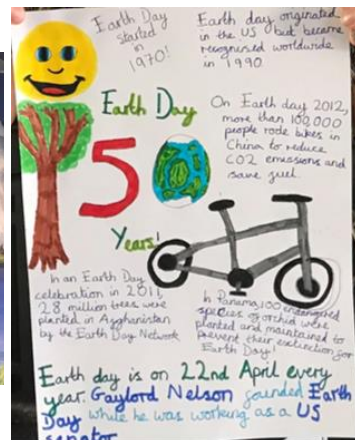 Earth Day
started
in
1970!
Earth day originated
in the US but became
recognised worldwide
in 1990
Earth Day
50
Years!
On Earth day 2012,
more than 100,000
people rode bikes in
China to reduce
CO2 emissions and
save fuel.
In an Earth Day
celebration in 2011,
28 million trees were
planted in Afghanistan
by the Earth Day Network
In Panama, 100 endangered
species of orchid were
planted and maintained to
prevent their extinction for
Earth Day!
Earth day is on 22nd April every
year. Gaylord Nelson founded Earth
Day while he was working as a US
senator